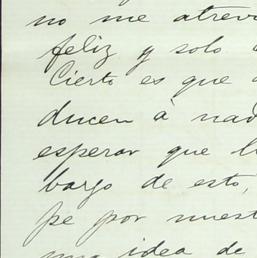 no me atrev
feliz y solo
Cierto es que
ducen à nad
esperar que l
bargo de esto,
pe por nuest
una idea de